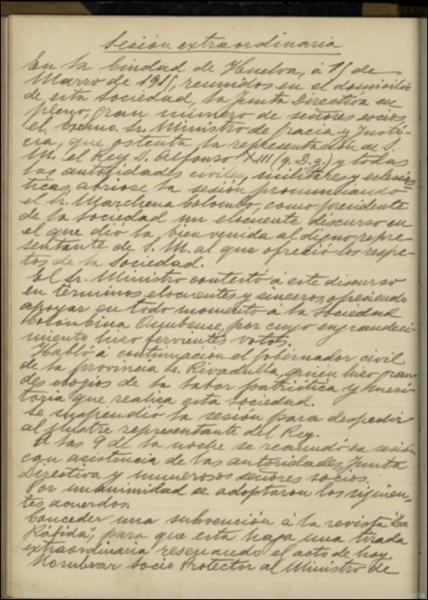 Sesión extraordinaria
En la Ciudad de Huelva, á 15 de
Marzo de 1915, reunidos en el domicilio
de esta Sociedad, la Junta Directiva en
pleno, gran número de señores socios,
el Excmo. Sr. Ministro de Gracia y Justi-
cia, que ostenta la representación de S.
M. el Rey D. Alfonso XIII (q. D. g.) y todas
las autoridades civiles, militares y eclesiás-
ticas, abriose la sesión pronunciando
el Sr. Marchena Colombo, como presidente
de la Sociedad un elocuente discurso en
el que dió la bienvenida al digno repre-
sentante de S. M. al que ofreció los respe-
tos de la Sociedad.
El Sr. Ministro contestó á este discurso
en términos elocuentes y sinceros, ofreciendo
apoyar en todo momento á la Sociedad
Colombina Onubense, por cuyo engrandeci-
miento hizo fervientes votos.
Habló á continuación el Gobernador civil
de la provincia Sr. Rivadulla, quien hizo gran-
des elogios de la labor patriótica y meri-
toria que realiza esta Sociedad.
Se suspendió la sesión para despedir
al ilustre representante del Rey.
A las 9 de la noche se reanudó la sesión
con asistencia de las autoridades, Junta
Directiva y numerosos señores socios.
Por unanimidad se adoptaron los siguien-
tes acuerdos.
Conceder una subvención á la revista "La
Rábida", para que esta haga una tirada
extraordinaria reseñando el acto de hoy.
Nombrar Socio Protector al Ministro de